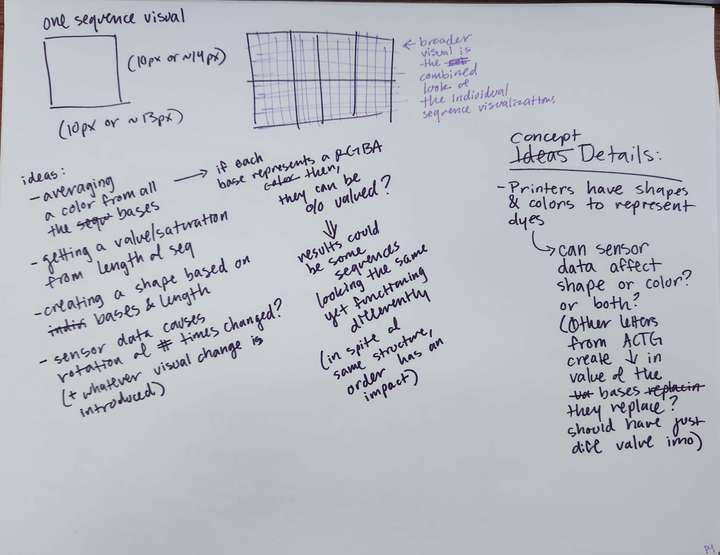 one sequence visual
(10px or ~14px)
(10px or ~13px)
← broader
visual is
the
combined
look of
the individual
sequence visualizations
ideas:
- averaging
a color from all
the sequ bases
→ if each
base represents a RGBA
color then,
they can be
0% valued?
⇓
results could
be some
sequences
looking the same
yet functioning
differently
(in spite of
same structure,
order has an
impact)
- getting a value/saturation
from length of seq
- creating a shape based on
indiv bases & length
- sensor data causes
rotation of # times changed?
(+ whatever visual change is
introduced)
Concept
Ideas Details:
- Printers have shapes
& colors to represent
dyes
↳ can sensor
data affect
shape or color?
or both?
(Other letters
from ACTG
create ↓ in
value of the
bases replacin
they replace?
should have just
diff value imo)